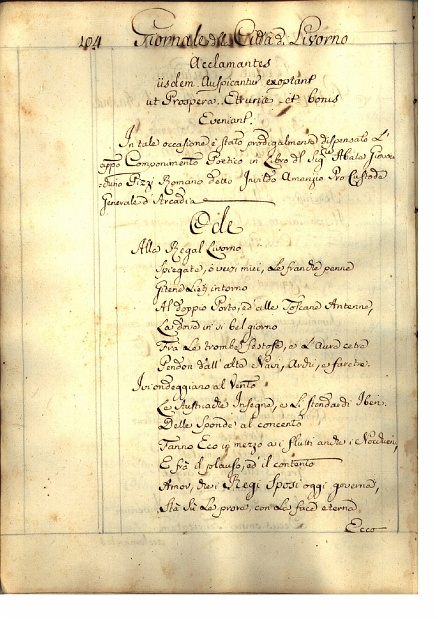 104 Giornale d. Città di Livorno
Acclamantes
iisdem Auspicantur exoptant
ut Prospera Etruriæ et bonis
Eveniant.
In tale occasione è stato prodigalmente dispensato l'
appo Componimento Poetico in Libro del Sigre Abate Giovac-
chino Pizzi Romano detto Amanzio Pro Custode
Generale d'Arcadia
Ode
Alla Regal Livorno
Spiegate, o versi miei, le franche penne
intorno
Al doppio Porto, ed alle Toscane Antenne,
Là dove in sì bel giorno
Fra le trombe festose, e l'Auree cetre
Pendon dall'alte Navi, Archi, e faretre.
Ivi ondeggiano al Vento
Le Austriache Insegne, e li Stendardi Iberi.
Delle Sponde al concento
Fanno Eco in mezzo ai flutti anche i Nocchieri,
E fra il plauso, ed il contento
Amor, che i Regi Sposi oggi governa,
Stà su la prora con la face eterna.
Ecco